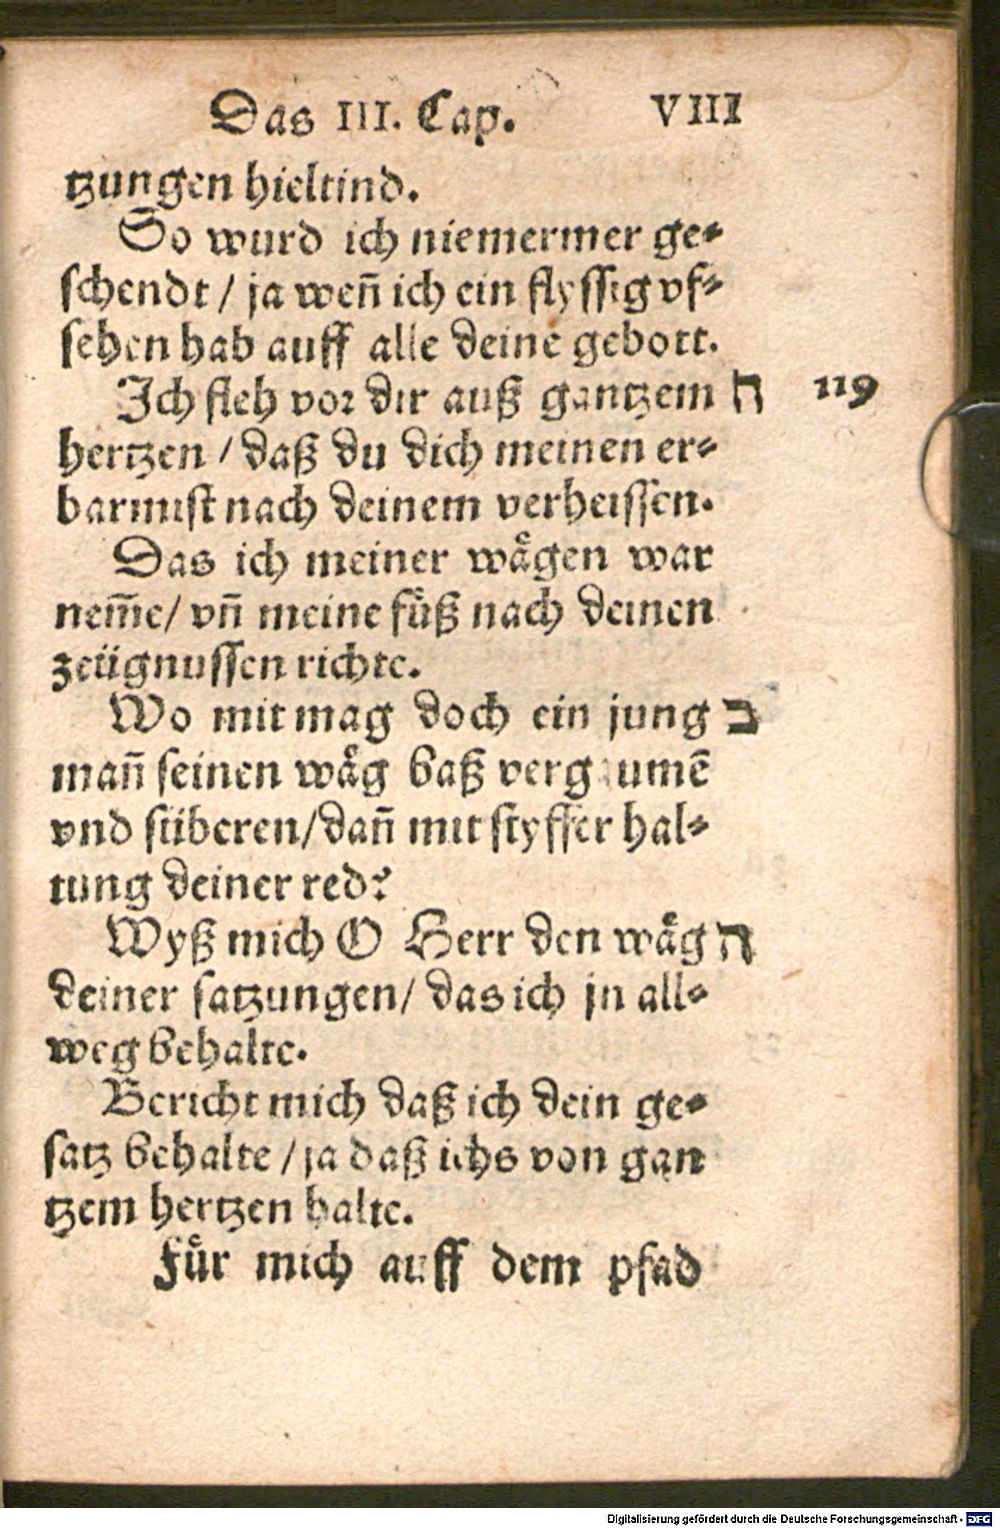 Das III. Cap. VIII
tzungen hieltind.
So wurd ich niemermer ge⸗
schendt / ja weñ ich ein flyssig vf⸗
sehen hab auff alle deine gebott.
Ich fleh vor dir auß gantzem ח 119
hertzen / daß du dich meinen er⸗
barmist nach deinem verheissen.
Das ich meiner waͤgen war
nem̃e / vñ meine fuͤß nach deinen
zeügnussen richte.
Wo mit mag doch ein jung ב
mañ seinen waͤg baß
vnd süberen / dañ mit styffer hal⸗
tung deiner red?
Wyß mich O Herr den waͤg ה
deiner satzungen / das ich jn all⸗
weg behalte.
Bericht mich daß ich dein ge⸗
satz behalte / ja daß ichs von gan
tzem hertzen halte.
Fuͤr mich auff dem pfad
Digitalisierung gefördert durch die Deutsche Forschungsgemeinschaft - DFG